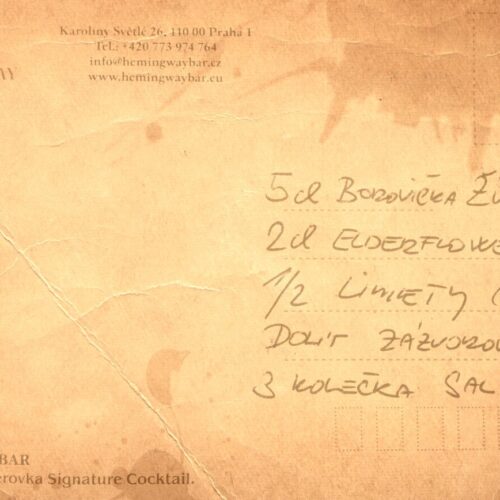 Karoliny Světlé 26, 110 00 Praha 1
Tel.: +420 773 974 764
info@hemingwaybar.cz
www.hemingwaybar.eu
5cl BOROVIČKA
2cl ELDERFLOWE
1/2 LIMETY
DOLIT ZÁZVOROV
3 KOLEČKA SAL
BAR
erovka Signature Cocktail.